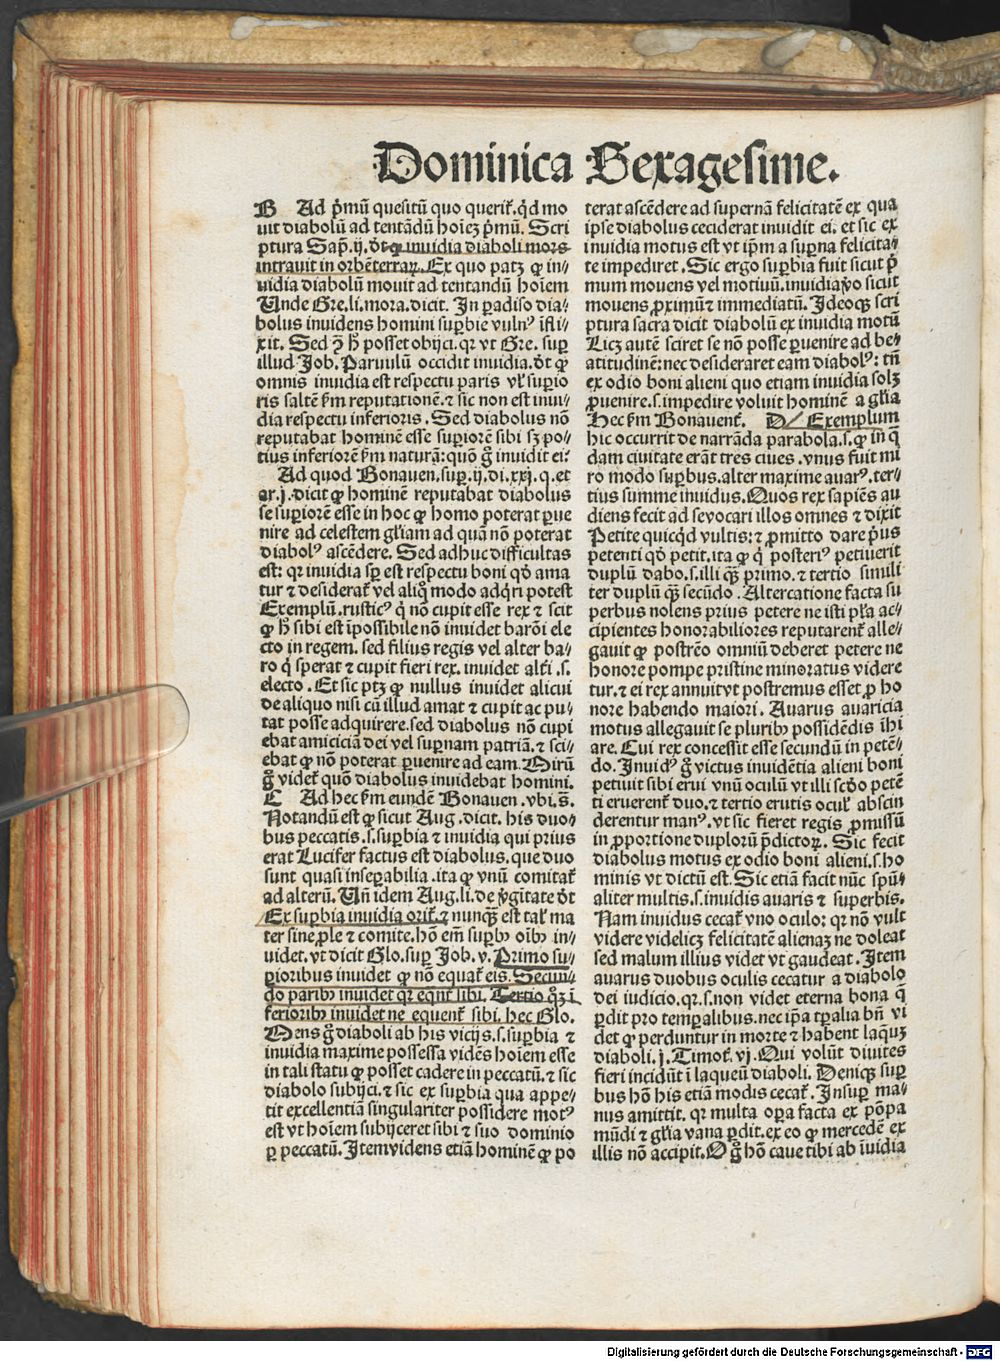 Dominica Sexagesime.
B Ad p̄mū quesitū quo querit᷑. q̇d mo
uit diabolū ad tentādū hoīeȝ p̄mū. Scri
ptura Sap̄. ij. ďt ꝙ inuidia diaboli mors
intrauit in orbē terraꝝ. Ex quo patȝ ꝙ in⸗
uidia diabolū mouit ad tentandū hoīem
Unde Gre. li. mora. dicit. In ꝑadiso dia⸗
bolus inuidens homini suꝑbie vulnꝰ īfli⸗
xit. Sed ꝯ̄ h̄ posset obijci. qꝛ vt Gre. suꝑ
illud Job. Paruulū occidit inuidia. ďt ꝙ
omnis inuidia est respectu paris vl̓ suꝑio
ris saltē ẜm reputationē. ⁊ sic non est inui⸗
dia respectu inferioris. Sed diabolus nō
reputabat hominē esse suꝑiorē sibi sȝ po⸗
tius inferiorē ẜm naturā: quō g̊ inuidit ei?
Ad quod Bonauen. suꝑ. ij. di. xxj. q. et
ar. j. dicit ꝙ hominē reputabat diabolus
se suꝑiorē esse in hoc ꝙ homo poterat ꝑue
nire ad celestem gl̓iam ad quā nō poterat
diabolꝰ ascēdere. Sed adhuc difficultas
est: qꝛ inuidia sꝑ est respectu boni qď ama
tur ⁊ desiderat᷑ vel aliq̊ modo adq̇ri potest
Exemplū. rusticꝰ q̇ nō cupit esse rex ⁊ scit
ꝙ h̄ sibi est īpossibile nō inuidet barōi ele
cto in regem. sed filius regis vel alter ba⸗
ro q̇ sperat ⁊ cupit fieri rex. inuidet alt̓i .s.
electo. Et sic ptȝ ꝙ nullus inuidet alicui
de aliquo nisi cū illud amat ⁊ cupit ac pu⸗
tat posse adquirere. sed diabolus nō cupi
ebat amiciciā dei vel suꝑnam patriā. ⁊ sci⸗
ebat ꝙ nō poterat ꝑuenire ad eam. Mirū
g̊ videt᷑ quō diabolus inuidebat homini.
C Ad hec ẜm eundē Bonauen. vbi. s̄.
Notandū est ꝙ sicut Aug. dicit. his duo⸗
bus peccatis .s. suꝑbia ⁊ inuidia qui prius
erat Lucifer factus est diabolus. que duo
sunt quasi inseꝑabilia. ita ꝙ vnū comitat᷑
ad alterū. Uñ idem Aug. li. de v̓gītate ďt
Ex suꝑbia inuidia orit᷑. ⁊ nunqȝ̄ est tal̓ ma
ter sine ꝓle ⁊ comite. hō em̄ suꝑbꝰ oībꝰ in⸗
uidet. vt dicit Glo. suꝑ Job. v. Primo su⸗
ꝑioribus inuidet ꝙ nō equat᷑ eis. Secun⸗
do paribꝰ inuidet qꝛ eqnt᷑ sibi. Tertio q̊ȝ ī
feriorībꝰ inuidet ne equent᷑ sibi. hec Glo.
Mens g̊ diaboli ab his vicijs .s. suꝑbia ⁊
inuidia maxime possessa vidēs hoīem esse
in tali statu ꝙ posset cadere in peccatū. ⁊ sic
diabolo subijci. ⁊ sic ex suꝑbia qua appe⸗
tit excellentiā singulariter possidere motꝰ
est vt hoīem subijceret sibi ⁊ suo dominio
ꝑ peccatū. Item videns etiā hominē ꝙ po
terat ascēdere ad supernā felicitatē ex qua
ipse diabolus ceciderat inuidit ei. et sic ex
inuidia motus est vt ip̄m a suꝑna felicita⸗
te impediret. Sic ergo suꝑbia fuit sicut p̄
mum mouens vel motiuū. inuidia v̊o sicut
mouens ꝓximū ⁊ immediatū. Ideoqȝ scri
ptura sacra dicit diabolū ex inuidia motū
Licȝ autē sciret se nō posse ꝑuenire ad be⸗
atitudinē: nec desideraret eam diabolꝰ: tñ
ex odio boni alieni quo etiam inuidia solȝ
ꝓuenire .s. impedire voluit hominē a gl̓ia
Hec ẜm Bonauent᷑. D Exemplum
hic occurrit de narrāda parabola .s. ꝙ in q̄
dam ciuitate erāt tres ciues. vnus fuit mi
ro modo suꝑbus. alter maxime auarꝰ. ter⸗
tius summe inuidus. Quos rex sapiēs au
diens fecit ad se vocari illos omnes ⁊ dixit
Petite quicq̇d vultis: ⁊ ꝓmitto dare p̓us
petenti qď petit. ita ꝙ q̇ posteriꝰ petiuerit
duplū dabo .s. illi qȝ̄ primo. ⁊ tertio simili
ter duplū qȝ̄ secūdo. Altercatione facta su
perbus nolens prius petere ne isti pl̓a ac⸗
cipientes honorabiliores reputarent᷑ alle⸗
gauit ꝙ postrēo omniū deberet petere ne
honore pompe pristine minoratus videre
tur. ⁊ ei rex annuit vt postremus esset ꝓ ho
nore habendo maiori. Auarus auaricia
motus allegauit se pluribꝰ possidēdis īhi
are. Cui rex concessit esse secundū in petē⸗
do. Inuidꝰ g̊ victus inuidētia alieni boni
petiuit sibi erui vnū oculū vt illi scďo petē
ti eruerent᷑ duo. ⁊ tertio erutis ocul̓ abscin
derentur manꝰ. vt sic fieret regis ꝓmissū
in ꝓportione duplorū p̄dictoꝝ. Sic fecit
diabolus motus ex odio boni alieni .s. ho
minis vt dictū est. Sic etiā facit nūc spūꝰ
aliter multis .s. inuidis auaris ⁊ superbis.
Nam inuidus cecat᷑ vno oculo: qꝛ nō vult
videre videlicȝ felicitatē alienaȝ ne doleat
sed malum illius videt vt gaudeat. Item
auarus duobus oculis cecatur a diabolo
dei iudicio. qꝛ .s. non videt eterna bona q̄
ꝑdit pro temꝑalibus. nec ip̄a tꝑalia bñ vi
det ꝙ perduntur in morte ⁊ habent laq̊uȝ
diaboli. j. Timot᷑. vj. Qui volūt diuites
fieri incidūt ī laqueū diaboli. Deniqȝ suꝑ
bus hō his etiā modis cecat᷑. Insuꝑ ma⸗
nus amittit. qꝛ multa oꝑa facta ex pōpa
mūdi ⁊ gl̓ia vana ꝑdit. ex eo ꝙ mercedē ex
illis nō accipit. O g̊ hō caue tibi ab īuidia
Digitalisierung gefördert durch die Deutsche Forschungsgemeinschaft - DFG